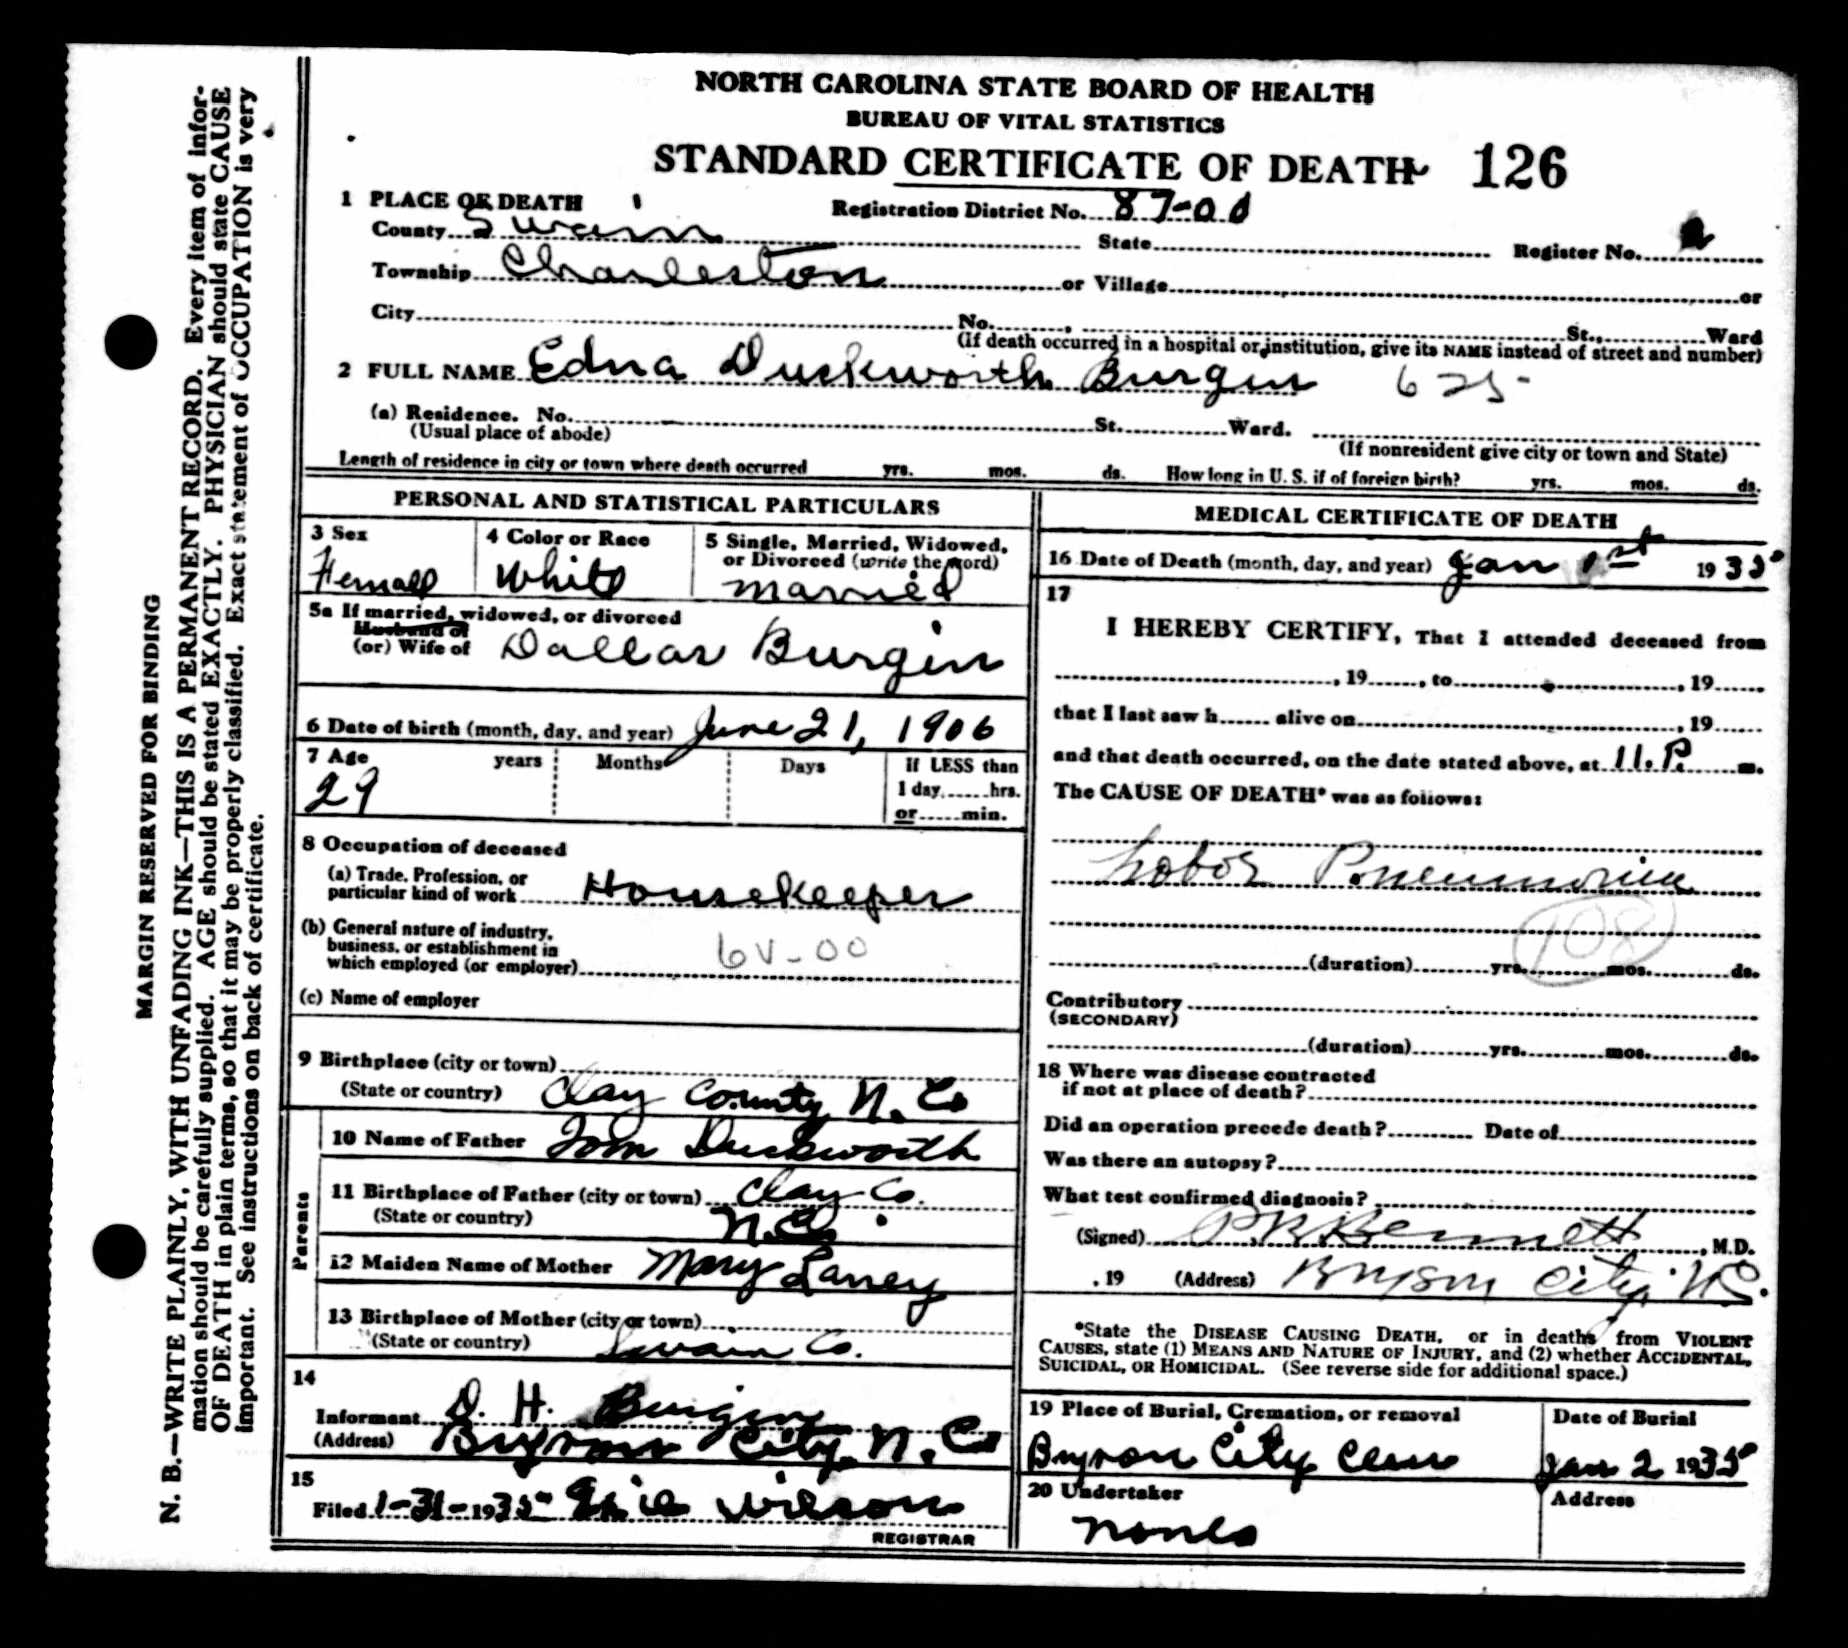 NORTH CAROLINA STATE BOARD OF HEALTH
BUREAU OF VITAL STATISTICS
STANDARD CERTIFICATE OF DEATH 126
1 PLACE OF DEATH Registration District No. 87-00
County Swain State Register No. 2
Township Charleston or Village or
City No. , St., Ward
(If death occurred in a hospital or institution, give its NAME instead of street and number)
2 FULL NAME Edna Duckworth Burgin 625-
(a) Residence. No. St. Ward.
(Usual place of abode) (If nonresident give city or town and State)
Length of residence in city or town where death occurred yrs. mos. ds. How long in U. S. if of foreign birth? yrs. mos. ds.
PERSONAL AND STATISTICAL PARTICULARS
3 Sex 4 Color or Race 5 Single, Married, Widowed,
or Divorced (write the word)
Femall White Married
5a If married, widowed, or divorced
Husband of
(or) Wife of Dallas Burgin
6 Date of birth (month, day, and year) June 21, 1906
7 Age years Months Days If LESS than
1 day, hrs.
29 or min.
8 Occupation of deceased
(a) Trade, Profession, or
particular kind of work Housekeeper
(b) General nature of industry,
business, or establishment in
which employed (or employer) 6V-00
(c) Name of employer
9 Birthplace (city or town)
(State or country) Clay County N. Co
Parents
10 Name of Father Tom Duckworth
11 Birthplace of Father (city or town) Clay Co.
(State or country) N.C.
12 Maiden Name of Mother Mary Laney
13 Birthplace of Mother (city or town)
(State or country) Swain Co.
14
Informant D. H. Burgin
(Address) Bryson City, N. Co
15
Filed 1-31-1935 Wilson
REGISTRAR
MEDICAL CERTIFICATE OF DEATH
16 Date of Death (month, day, and year) Jan 1st 1935
17
I HEREBY CERTIFY, That I attended deceased from
, 19 , to , 19
that I last saw h alive on , 19
and that death occurred, on the date stated above, at 11.P. m.
The CAUSE OF DEATH* was as follows:
Lobor Pneumonia
108
(duration) yrs. mos. ds.
Contributory
(SECONDARY)
(duration) yrs. mos. ds.
18 Where was disease contracted
if not at place of death?
Did an operation precede death? Date of
Was there an autopsy?
What test confirmed diagnosis?
(Signed) P R Bennett , M.D.
, 19 (Address) Bryson City, N.C.
*State the DISEASE CAUSING DEATH, or in deaths from VIOLENT
CAUSES, state (1) MEANS AND NATURE OF INJURY, and (2) whether ACCIDENTAL,
SUICIDAL, OR HOMICIDAL. (See reverse side for additional space.)
19 Place of Burial, Cremation, or removal Date of Burial
Bryson City Cem Jan 2 1935
20 Undertaker Address
Nones
MARGIN RESERVED FOR BINDING
N. B.—WRITE PLAINLY, WITH UNFADING INK—THIS IS A PERMANENT RECORD. Every item of infor-
mation should be carefully supplied. AGE should be stated EXACTLY. PHYSICIAN should state CAUSE
OF DEATH in plain terms, so that it may be properly classified. Exact statement of OCCUPATION is very
important. See instructions on back of certificate.